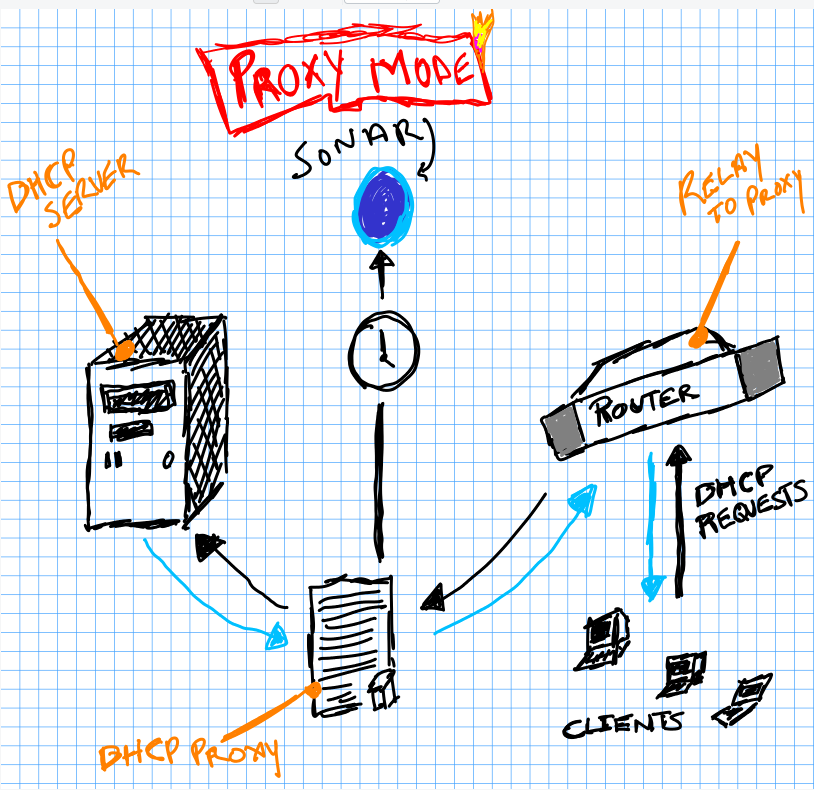 PROXY MODE
SONAR
DHCP
SERVER
RELAY
TO PROXY
ROUTER
DHCP
REQUESTS
CLIENTS
DHCP PROXY